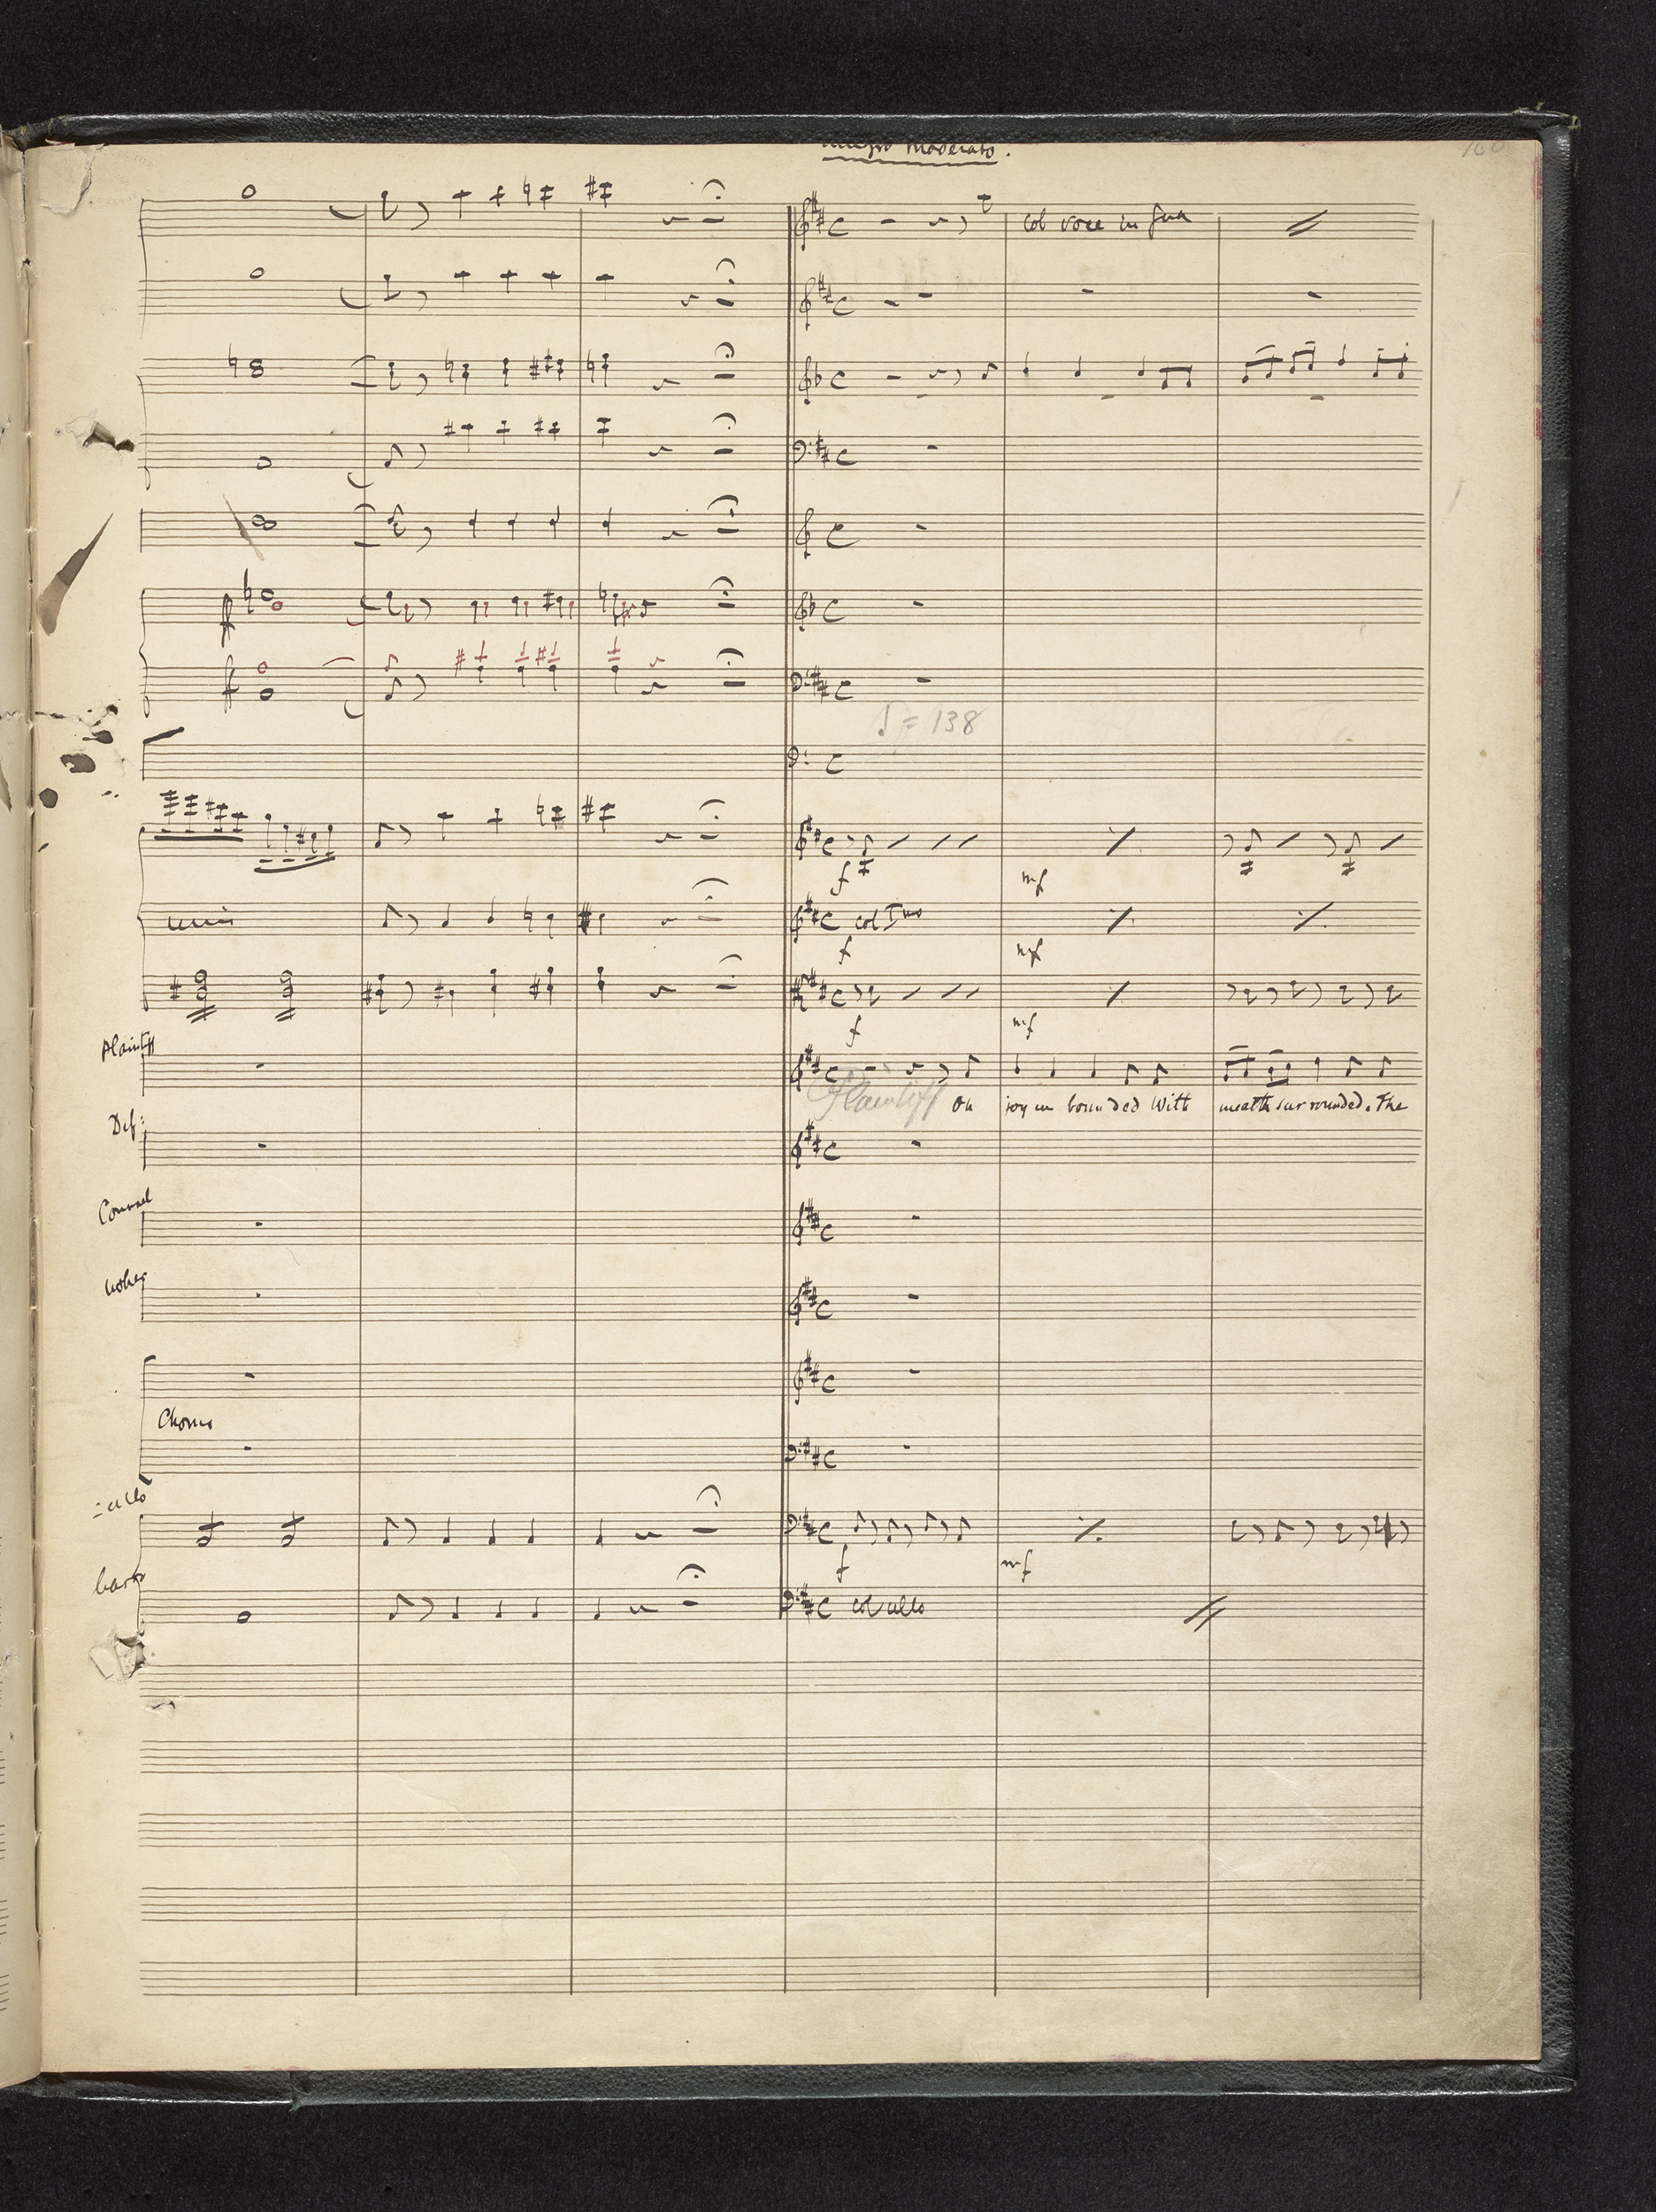 Allegro Moderato.
160
col voce in 8va
ff
ff
♩ = 138
f
mf
unis
col Imo
f
mf
f
mf
Plaintiff
Plaintiff
Oh joy un bounded With wealth sur rounded. The
Def:
Counsel
Usher
Chorus
cello
f
mf
bass
col cello